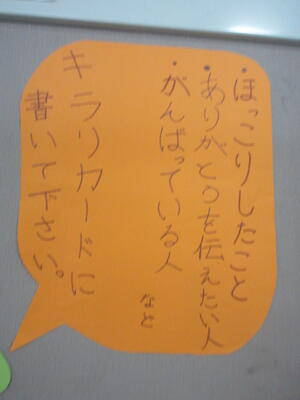 ・ほっこりしたこと
・ありがとうを伝えたい人
・がんばっている人
など
キラリカードに
書いて下さい。